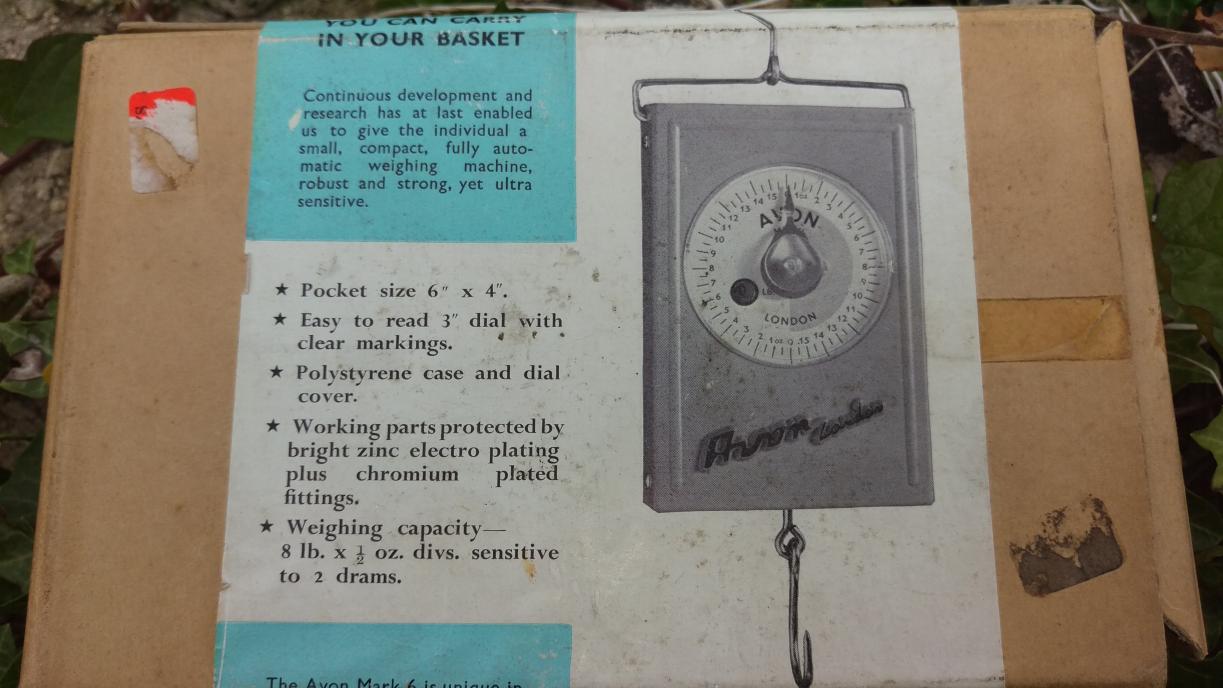 YOU CAN CARRY
IN YOUR BASKET
Continuous development and
research has at last enabled
us to give the individual a
small, compact, fully auto-
matic weighing machine,
robust and strong, yet ultra
sensitive.
★ Pocket size 6" x 4".
★ Easy to read 3" dial with
clear markings.
★ Polystyrene case and dial
cover.
★ Working parts protected by
bright zinc electro plating
plus chromium plated
fittings.
★ Weighing capacity—
8 lb. x ½ oz. divs. sensitive
to 2 drams.
The Avon Mark 6 is unique in
AVON
LONDON
Avon London